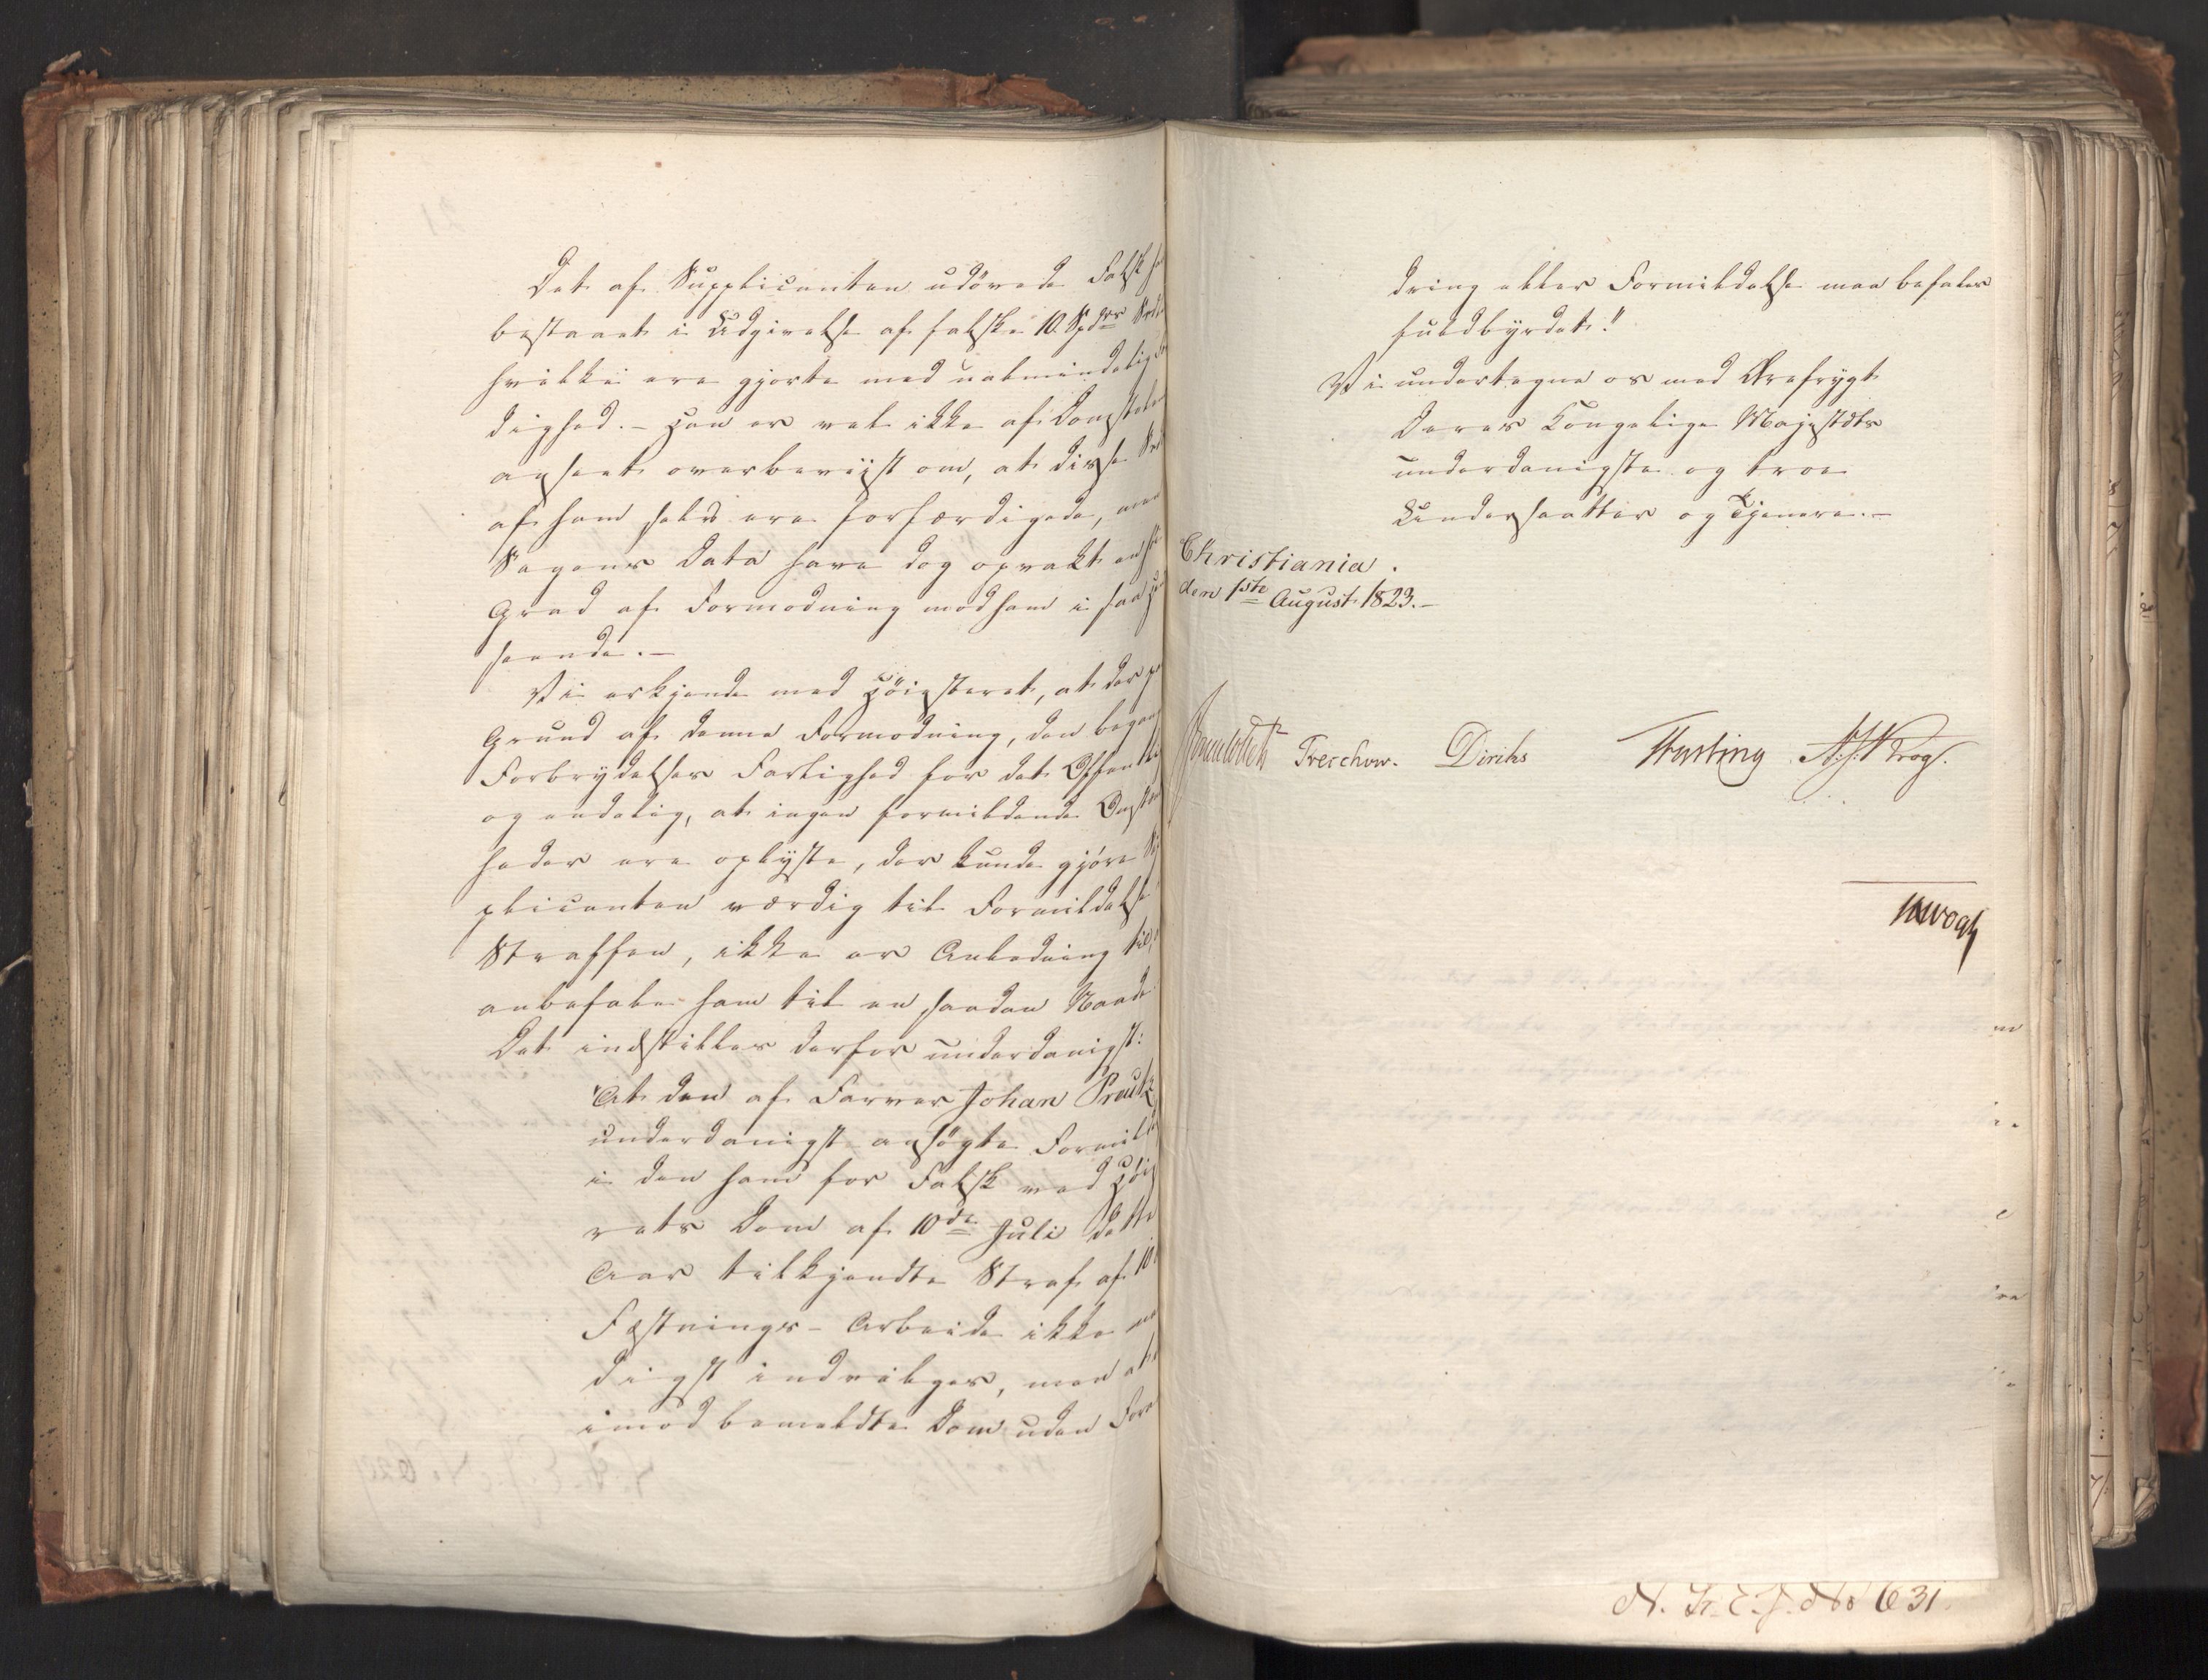 Det af Supplicanten udövede Falsk har
bestaaet i Udgivelse af falske 10 Spdlrs Sed
hvilke ere gjorte med ualmindelig
dighed. – Han er vel ikke af Domstolene
anseet overbeviist om, at disse Sed
af ham selv ere forfærdigede, men
Sagens Data have dog opvakt en
Grad af Formodning mod ham i saa Hen
seende. –
Vi erkjende med Höiesteret, at der paa
Grund af denne Formodning, den begaaede
Forbrydelses Farlighed for det Offentlige
og endelig, at ingen formildende Omstæn
heder ere oplyste, der kunde gjöre Sup
plicanten værdig til Formildelse i
Straffen, ikke er Anledning til at
anbefale ham til en saadan Naade.
Det indstilles derfor underdanigst:
"At den af Farver Johan Preutz
underdanigst ansögte Formild
i den ham for Falsk ved Höieste
rets Dom af 10de Juli dette
Aar tilkjendte Straf af 10
Fæstnings-Arbeide ikke naa
digst indvilges, men at
imod bemeldte Dom uden Foran
dring eller Formildelse maa befales
fuldbyrdet."
Vi undertegne os med Ærefrygt
Deres Kongelige Majestæts
underdanigste og troe
Undersaatter og Tjenere. –
Christiania.
den 1ste August 1823. –
Treschow. Diriks Fasting A: S: Krog.
Vogt
N. R. E. J. No 631